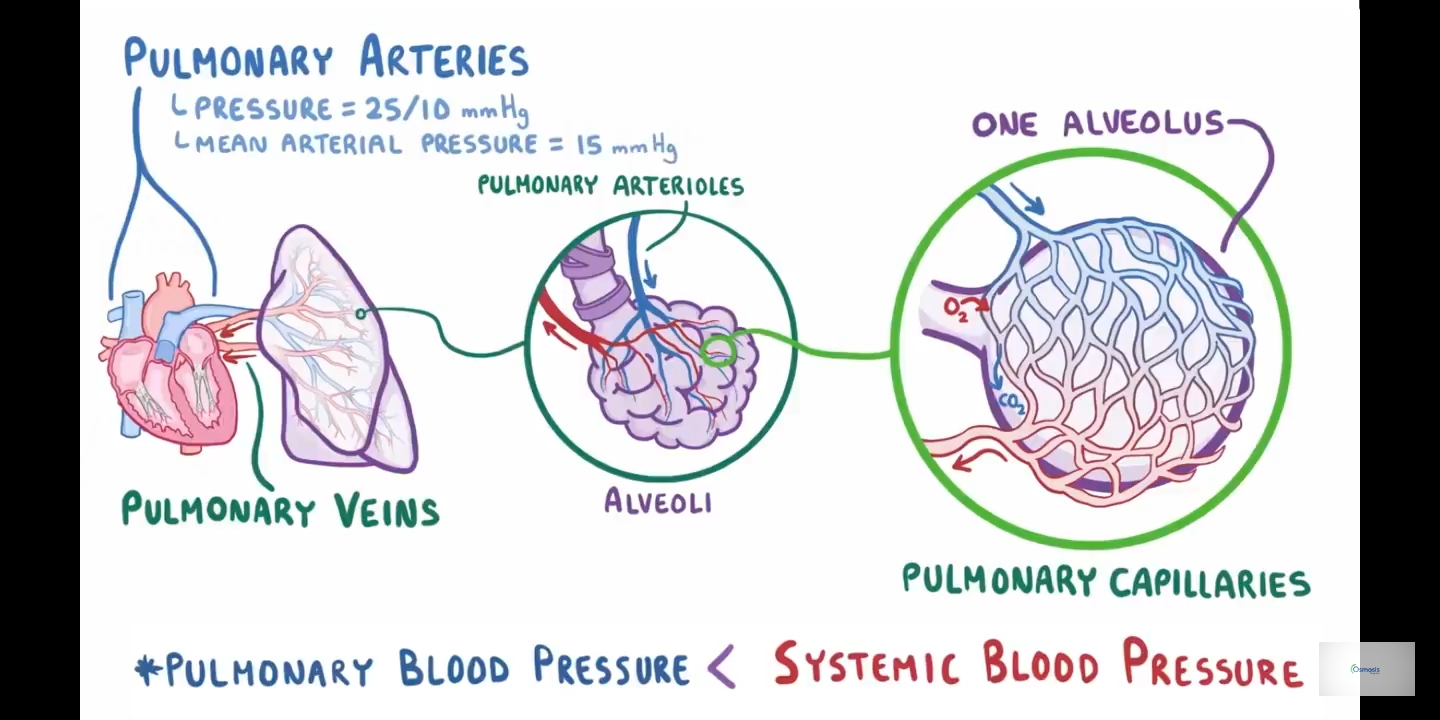 PULMONARY ARTERIES
└ PRESSURE = 25/10 mmHg
└ MEAN ARTERIAL PRESSURE = 15 mmHg
PULMONARY ARTERIOLES
ONE ALVEOLUS
O₂
CO₂
PULMONARY VEINS
ALVEOLI
PULMONARY CAPILLARIES
*PULMONARY BLOOD PRESSURE < SYSTEMIC BLOOD PRESSURE
Osmosis